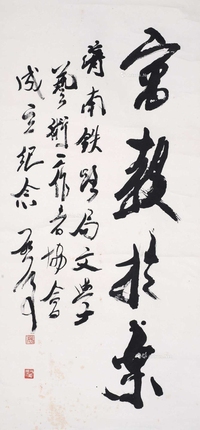 寓教于乐
济南铁路局文学
艺术工作者协会
成立纪念